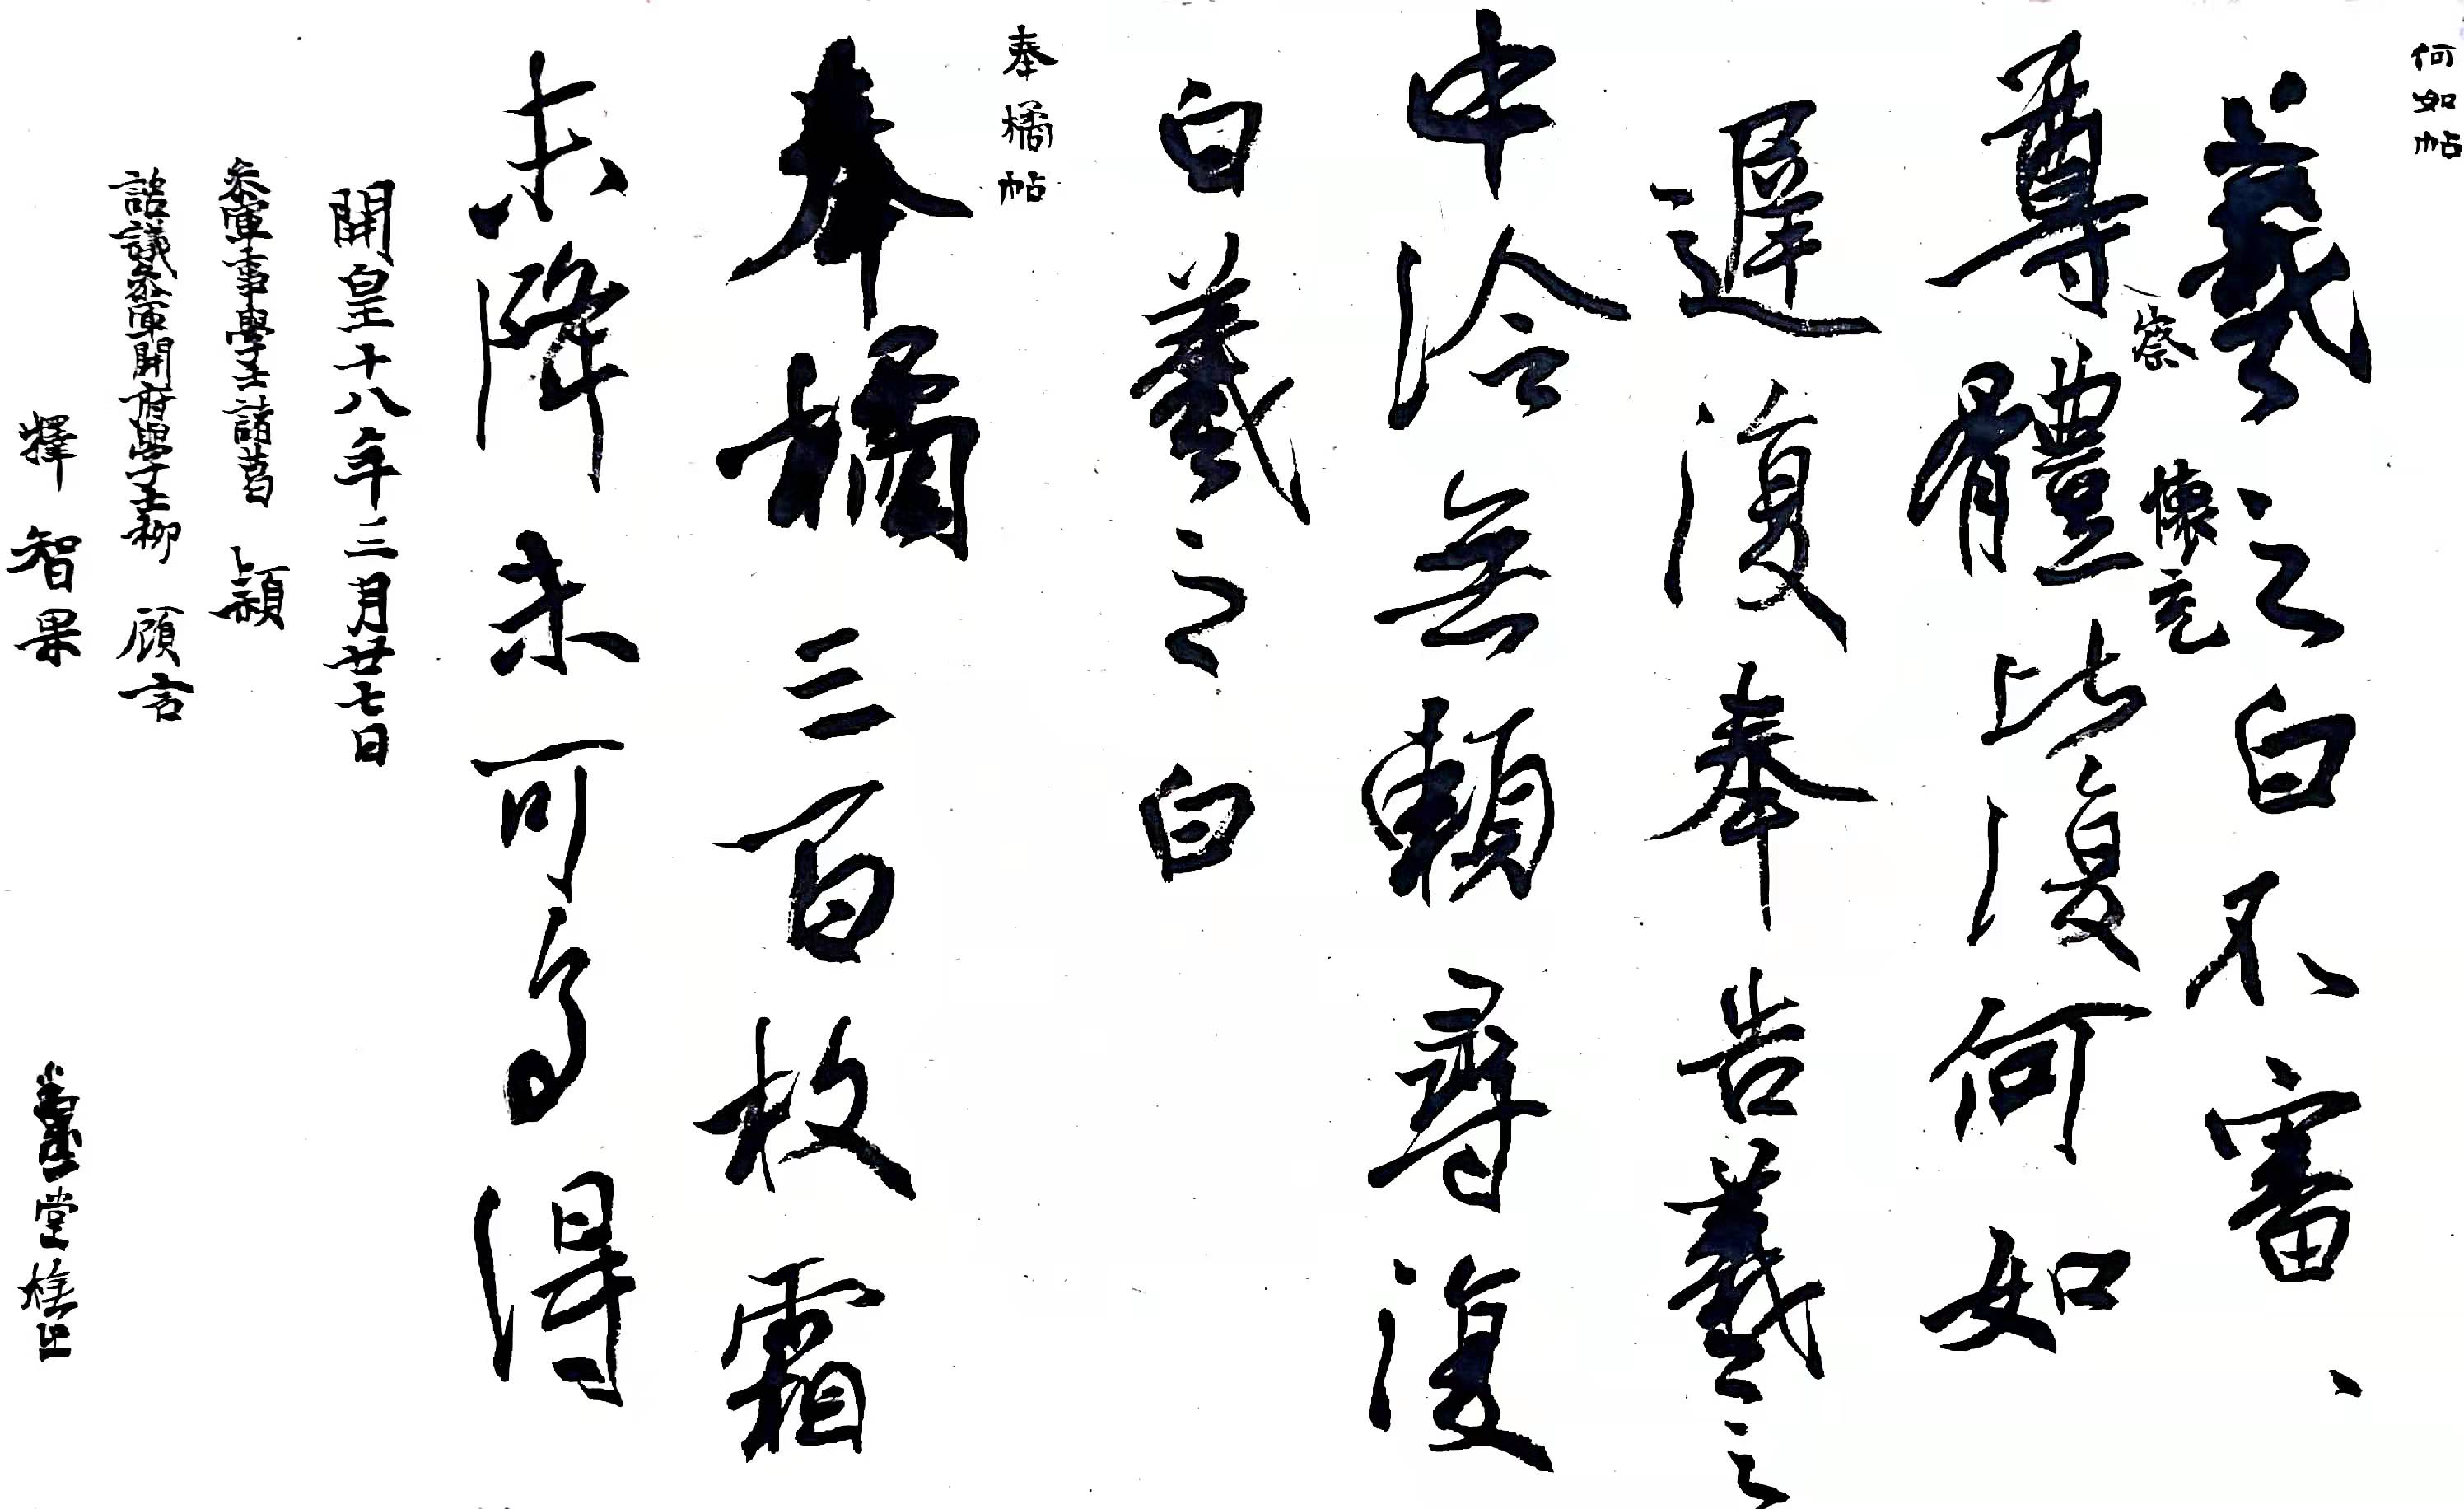 何如帖
羲之白不審、
尊體比復何如
察
懷充
遲復奉告羲之
中冷無賴尋復
白羲之白
奉橘帖
奉橘三百枚霜
未降未可多得
開皇十八年三月廿七日
參軍事學士諸葛穎
諮議參軍開府學士柳顧言
釋智果